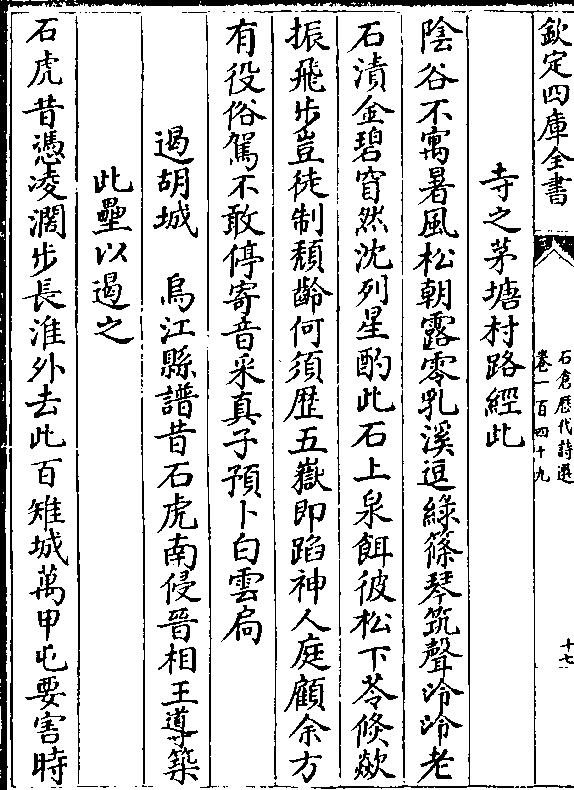 欽定四庫全書
石倉歷代詩選
卷一百四十九
十七
寺之茅塘村路經此
陰谷不寓暑風松朝露零乳溪逗綠篠琴筑聲泠泠老
石漬金碧窅然沈列星酌此石上泉餌彼松下苓倏歘
振飛步豈徒制頹齡何須歴五嶽即蹈神人庭顧余方
有役俗駕不敢停寄音采真子預卜白雲扃
遏胡城　烏江縣譜昔石虎南侵晉相王導築
此壘以遏之
石虎昔憑凌濶步長淮外去此百雉城萬甲屯要害時